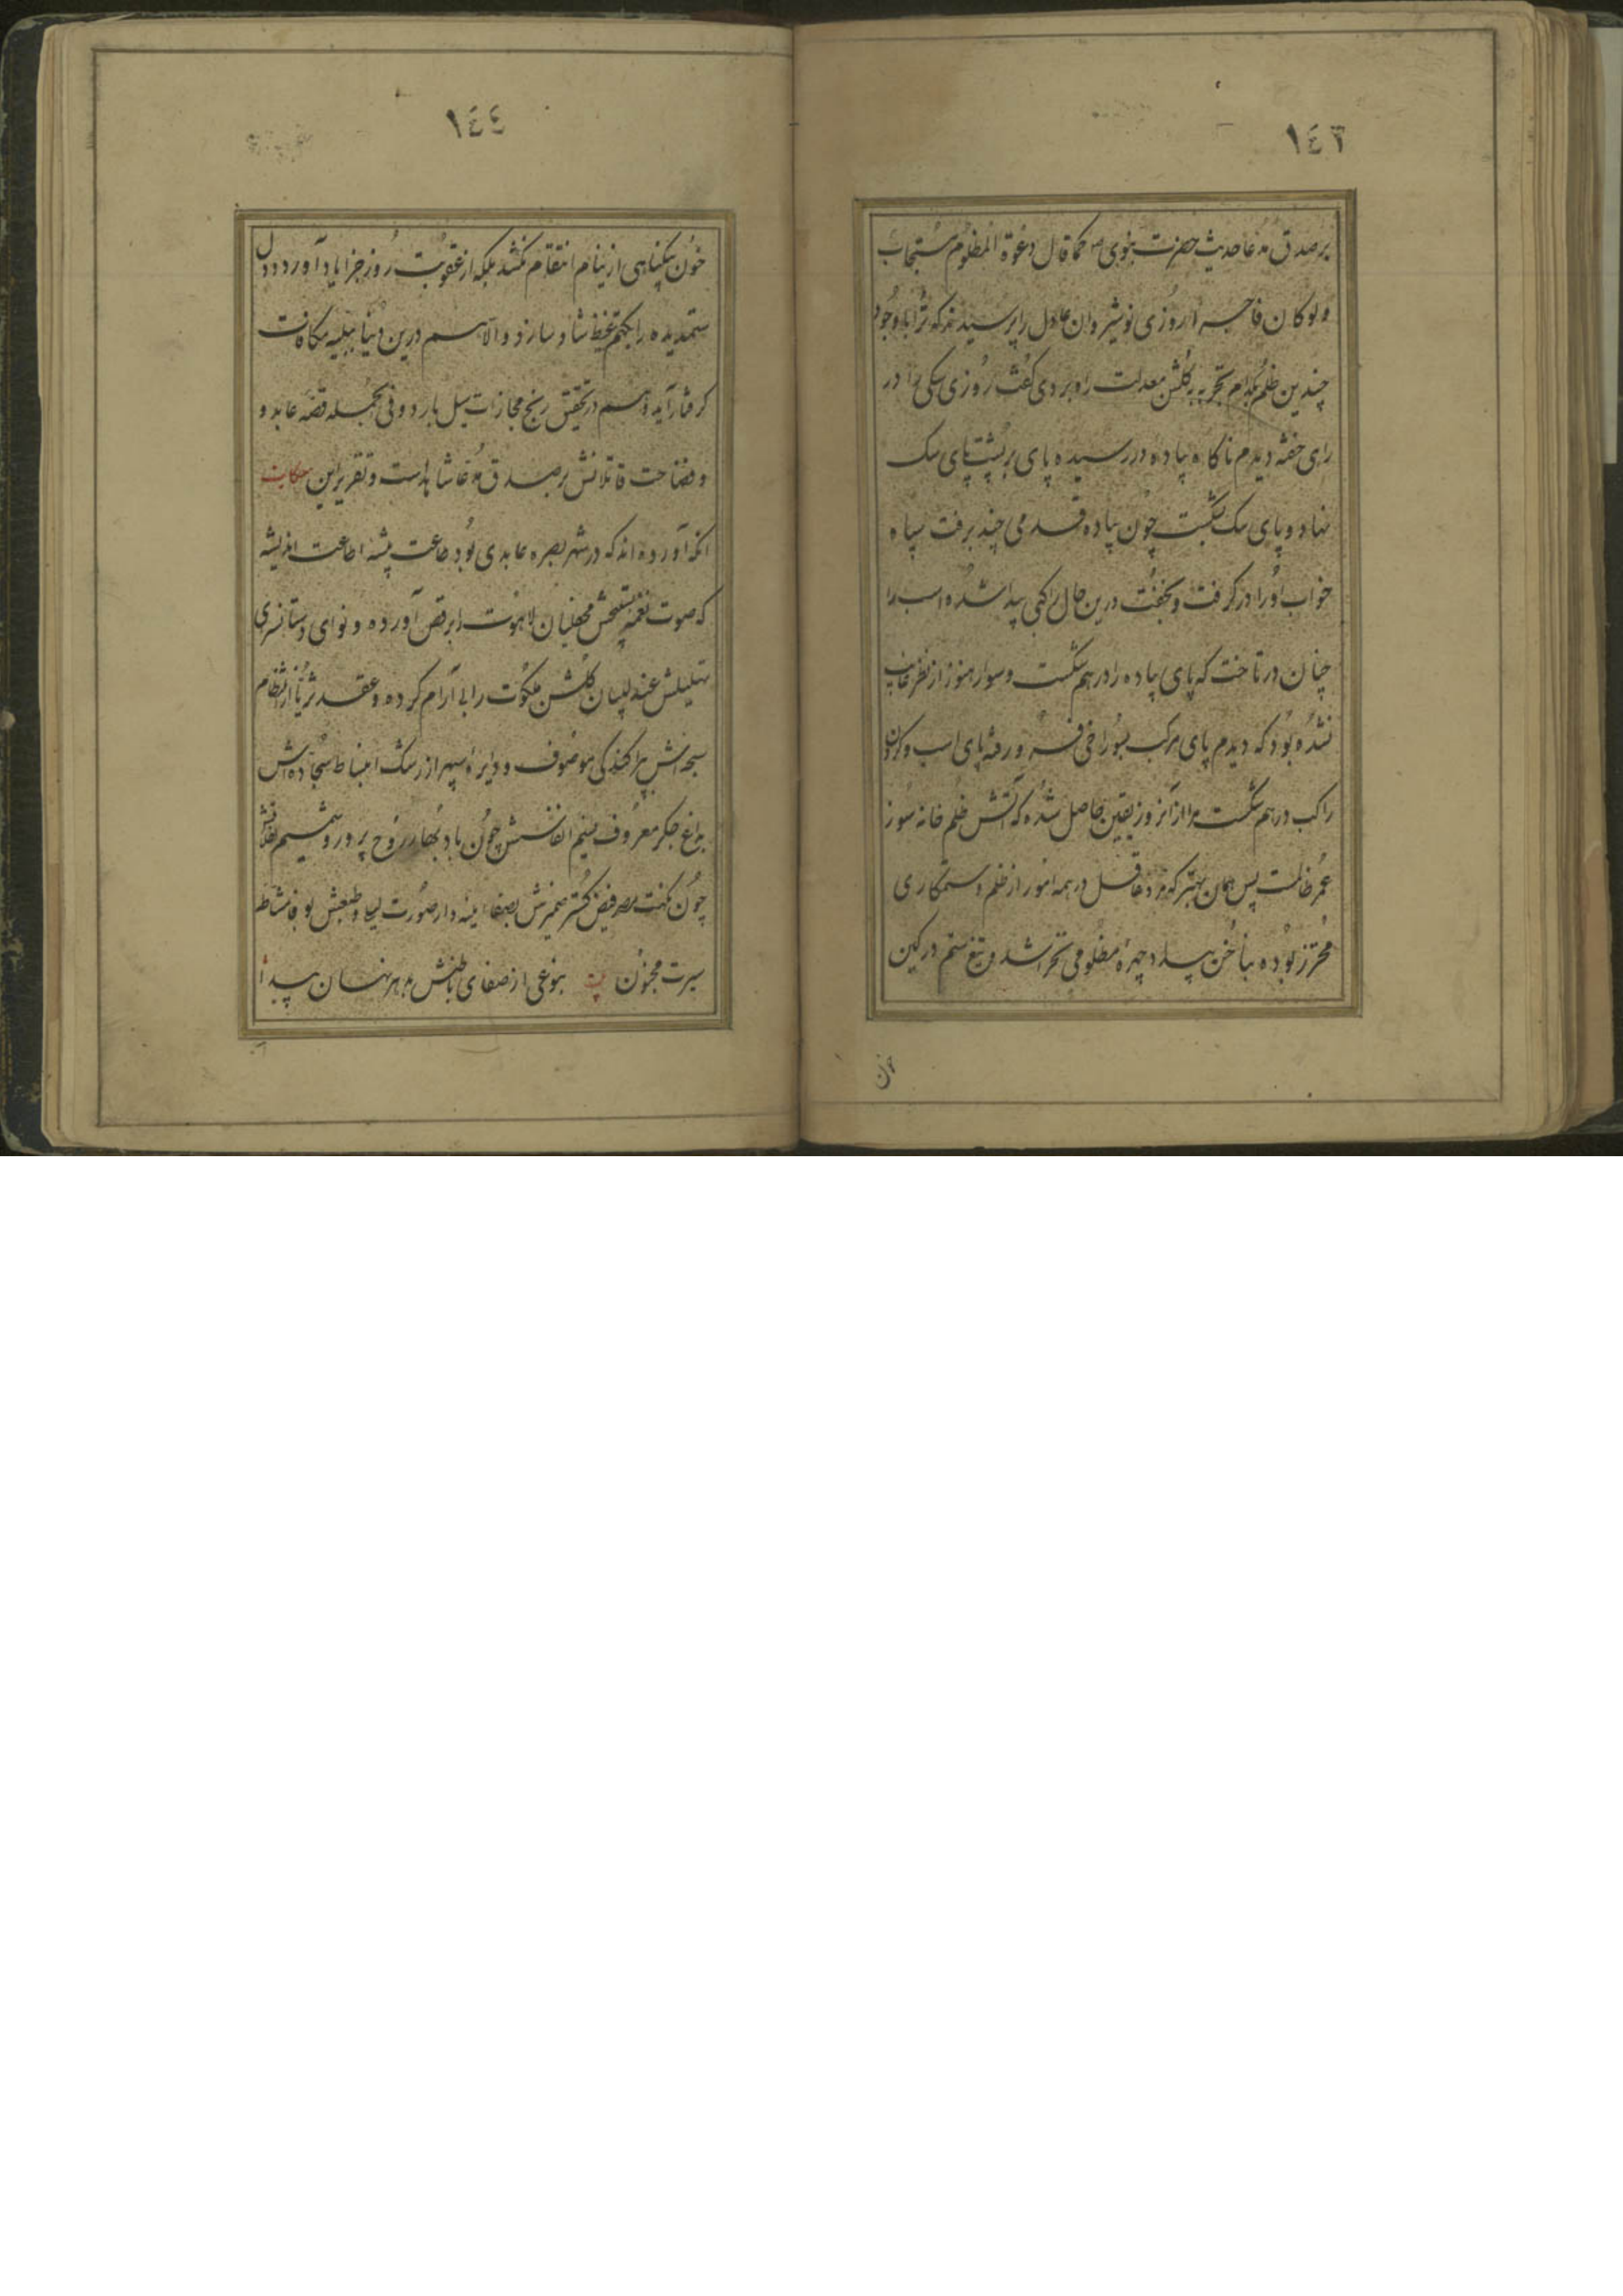 ١٤٣
برصدق مدعا حدیث حضرت نبوی ص کما قال دعوة المظلوم مستجاب
ولو کان فاجرا روزی نوشیروان عادل را پرسیدند که ترا با وجود
چندین ظلم بکدام تجربه بگلشن معدلت راه بردی گفت روزی سکی را در
راهی خفته دیدم ناکاه پیاده در رسیده پای بر پشت پای سک
نهاد و پای سک شکست چون پیاده قدمی چند برفت سپاه
خواب او را در کرفت و بخفت درین حال راکبی پیدا شده اسب را
چنان در تاخت که پای پیاده را در هم شکست و سوار هنوز از نظر غایب
نشده بود که دیدم پای مرکب بسوراخی فرو رفته پای اسب و کردن
راکب در هم شکست مرا از آنروز یقین حاصل شده که آتش ظلم خانه سوز
عمر ظالمست پس همان بهتر که مرد عاقل در همه امور از ظلم و ستمکاری
محترز بوده بناخن بیداد چهره مظلومی نخراشد و تیغ ستم در کین
خون
١٤٤
خون بیکناهی از نیام انتقام نکشد بلکه از عقوبت روز جزا یاد آورد و دل
ستمدیده را بکظم غیظ شاد سازد و والا هم درین دنیا ببلیه مکافات
کرفتار آید و هم در تحقیق رنج مجازات سیل بارد و فی الجمله قصه عابد و
و فضاحت قاتلانش بر صدق مدعا شاهد است و تقریر این حکایت
انکه آورده اند که در شهر بصره عابدی بود طاعت پیشه اطاعت اندیشه
که صوت نغمه تسبیحش محفلیان لاهوت را برقص آورده و نوای دستانسرای
تهلیلش عندلیبان گلشن ملکوت را بی آرام کرده و عقد ثریا از انتظام
سبحه اش پراکندکی موصوف و دایره سپهر از رشک انبساط سجاده اش
بداغ جکر معروف نسیم انفاسش چون باد بهار روح پرور و شمیم
چون نکهت مصر فیض کستر ضمیرش بصفا آینه دار صورت لیلی و طبعش بوفا نشاط
سیرت مجنون بیت بنوعی از صفای باطنش هر نهان پیدا